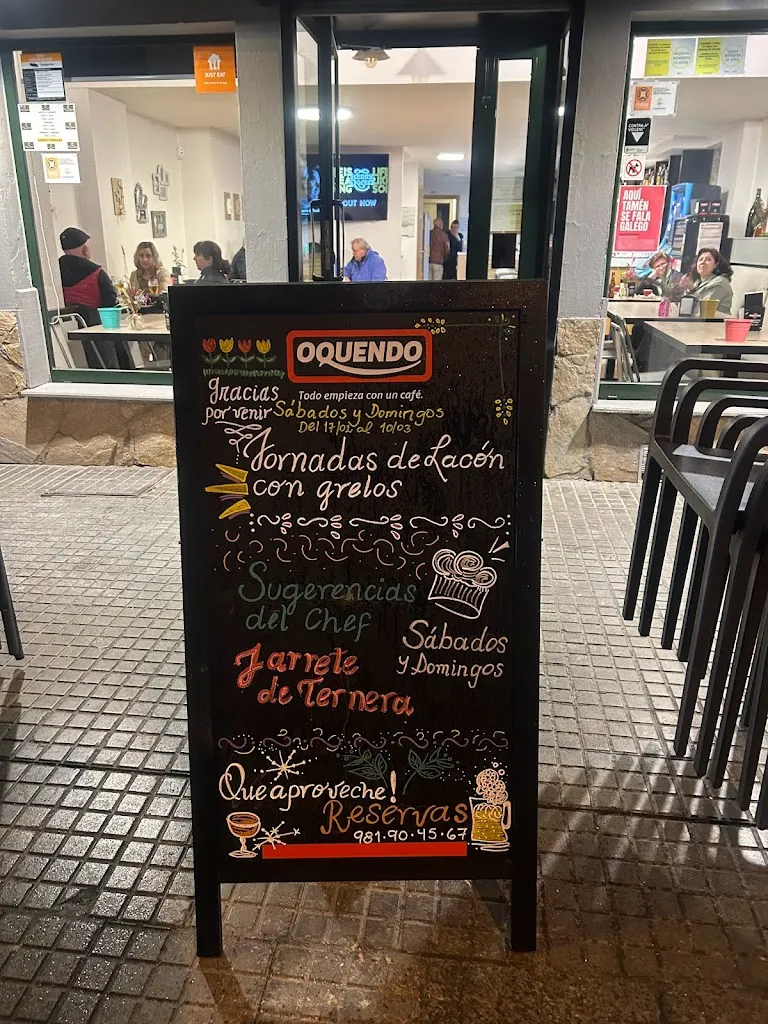 JUST EAT
OUT NOW
CONTROLA
AQUÍ
TAMÉN
SE FALA
GALEGO
OQUENDO
Todo empieza con un café.
gracias
por venir
Sábados y Domingos
Del 17/02 al 10/03
Jornadas de Lacón
con grelos
Sugerencias
del Chef
Sábados
y Domingos
Jarrete
de Ternera
Que aproveche!
Reservas
981·90·45·67